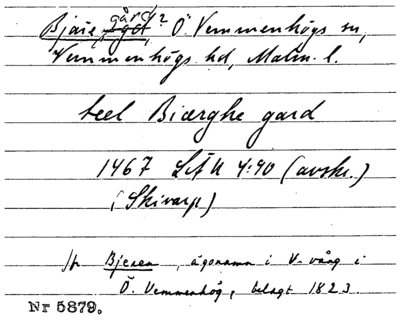 Bjäre gård? Ö. Vemmenhögs sn,
Vemmenhögs hd, Malm. l.
teel Biærghe gard
1467 LÄU 4:90 (avskr.)
(Skivarp)
Jfr Bjeren, ägonamn i V-vång i
Ö. Vemmenhög, belagt 1823.
Nr 5879.